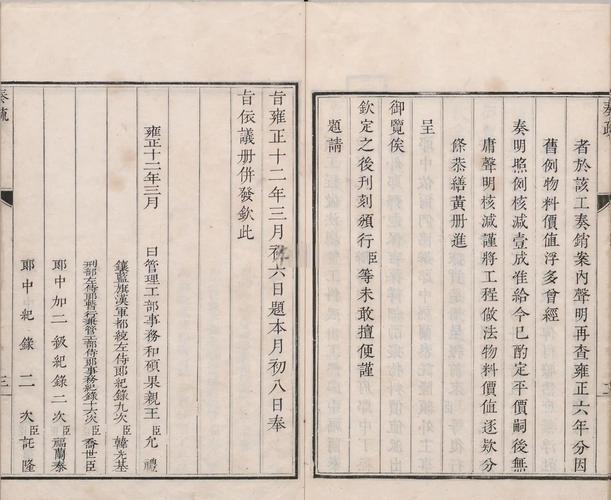 奏疏
者於該工奏銷案內聲明再查雍正六年分因
舊例物料價值浮多曾經
奏明照例核減壹成准給今已酌定平價嗣後無
庸聲明核減謹將工程做法物料價值逐欵分
條恭繕黃册進
呈
御覽俟
欽定之後刊刻頒行臣等未敢擅便謹
題請
旨雍正十二年三月初六日題本月初八日奉
旨依議册併發欽此
雍正十二年三月 日管理工部事務和碩果親王臣允禮
鑲藍旗漢軍都統左侍郎紀錄九次臣韓光基
刑部左侍郎暫行兼管工部侍郎事務紀錄十六次臣喬世臣
郎中加二級紀錄二次臣福蘭泰
郎中紀錄二次臣託隆
奏疏
三